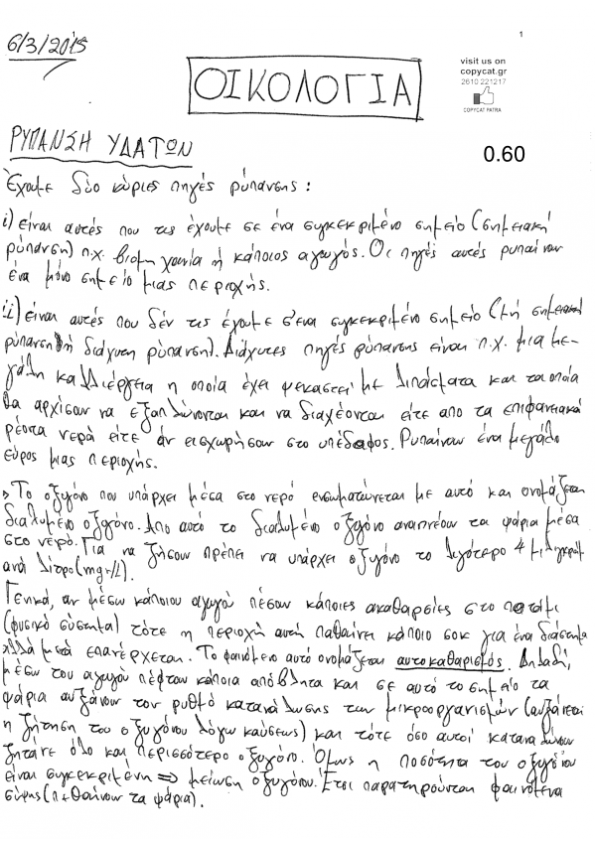 6/3/2015
1
visit us on
copycat.gr
2610 221217
COPYCAT PATRA
ΟΙΚΟΛΟΓΙΑ
ΡΥΠΑΝΣΗ ΥΔΑΤΩΝ
0.60
Έχουμε δύο κύριες πηγές ρύπανσης:
i) είναι αυτές που τις έχουμε σε ένα συγκεκριμένο σημείο (σημειακή
ρύπανση) π.χ. βιομηχανία ή κάποιος αγωγός. Οι πηγές αυτές ρυπαίνουν
ένα μόνο σημείο μιας περιοχής.
ii) είναι αυτές που δεν τις έχουμε σ'ένα συγκεκριμένο σημείο (μή σημειακή
ρύπανση ή διάχυτη ρύπανση). Διάχυτες πηγές ρύπανσης είναι π.χ. μια με-
γάλη καλλιέργεια η οποία έχει ψεκαστεί με λιπάσματα και τα οποία
θα αρχίσουν να εξαπλώνονται και να διαχέονται είτε απο τα επιφανειακά
ρέοντα νερά είτε άν εισχωρήσουν στο υπέδαφος. Ρυπαίνουν ένα μεγάλο
εύρος μιας περιοχής.
» Το οξυγόνο που υπάρχει μέσα στο νερό ενσωματώνεται με αυτό και ονομάζεται
διαλυμένο οξυγόνο. Απο αυτό το διαλυμένο οξυγόνο αναπνέουν τα ψάρια μέσα
στο νερό. Για να ζήσουν πρέπει να υπάρχει οξυγόνο το λιγότερο 4 μιλιγκράμ
ανά λίτρο (mgr/l).
Γενικά, αν μέσω κάποιου αγωγού πέσουν κάποιες ακαθαρσίες στο ποτάμι
(φυσικό σύστημα) τότε η περιοχή αυτή παθαίνει κάποιο σοκ για ένα διάστημα
αλλά μετά επανέρχεται. Το φαινόμενο αυτό ονομάζεται αυτοκαθαρισμός. Δηλαδή,
μέσω του αγωγού πέφτουν κάποια απόβλητα και σε αυτό το σημείο τα
ψάρια αυξάνουν τον ρυθμό κατανάλωσης των μικροοργανισμών (αυξάνεται
η ζήτηση του οξυγόνου λόγω καύσεως) και τότε όσο αυτοί καταναλώνουν
ζητάνε όλο και περισσότερο οξυγόνο. Όμως η ποσότητα του οξυγόνου
είναι συγκεκριμένη => μείωση οξυγόνου. Έτσι παρατηρούνται φαινόμενα
σήψης (πεθαίνουν τα ψάρια).